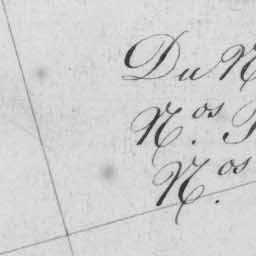 Du N
N.os
N.os